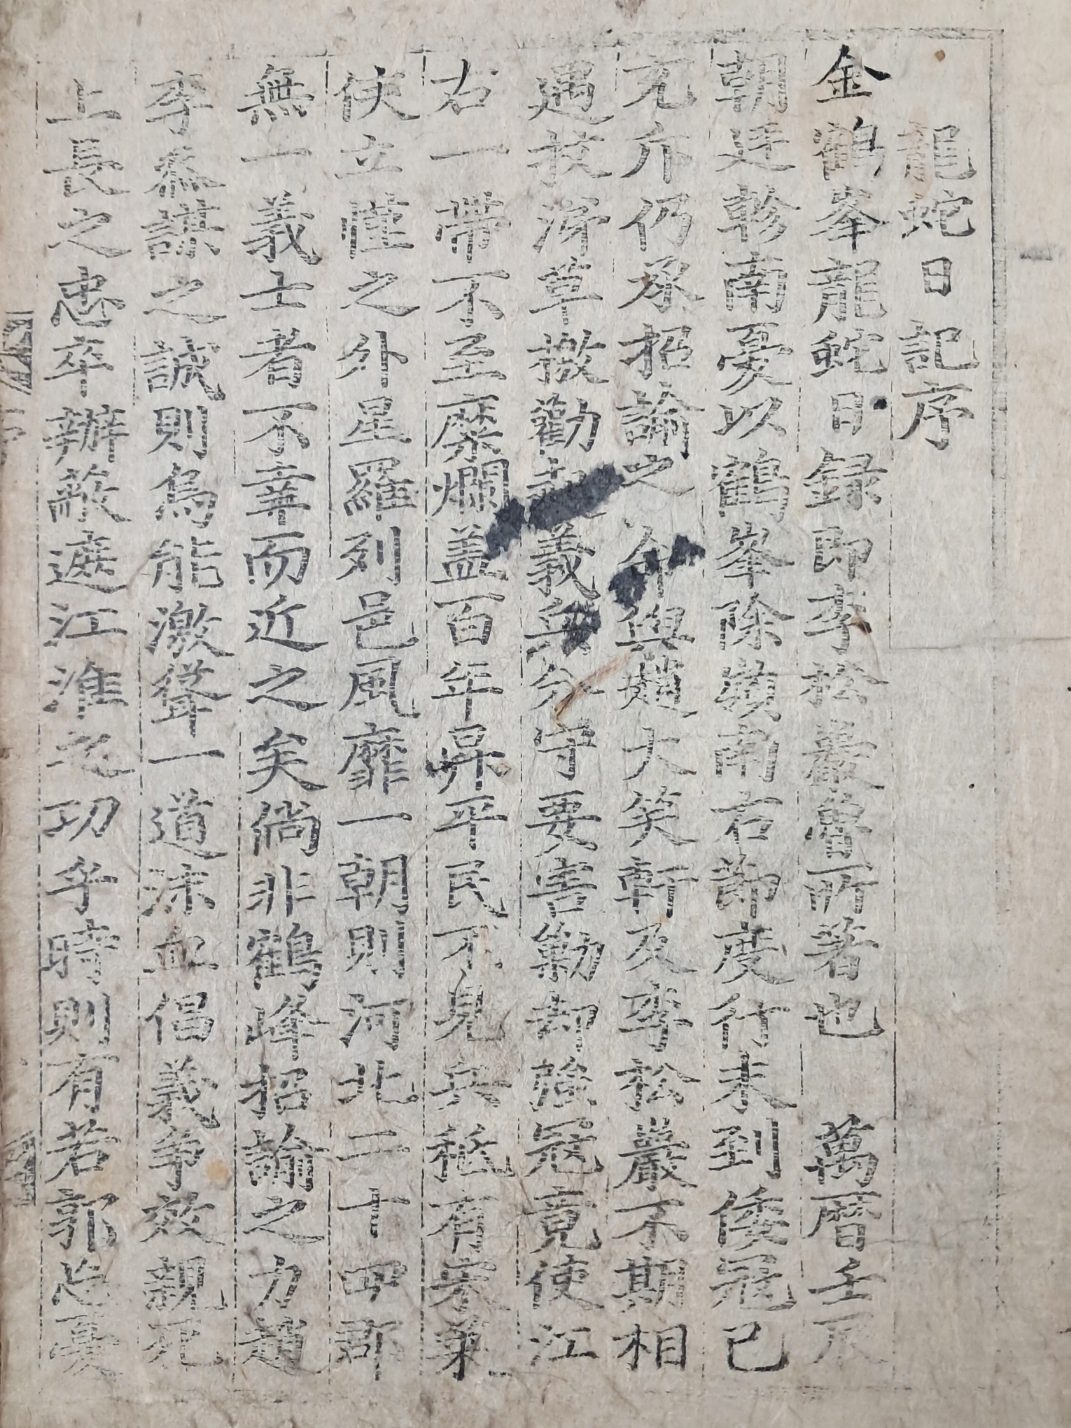 龍蛇日記序
金鶴峯龍蛇日錄即李松巖魯所著也 萬曆壬辰
朝廷軫南憂以鶴峯除嶺南右節度行未到倭冦已
充斥仍承招諭之命與趙大笑軒及李松巖不期相
遇扙淂草檄勸起義兵分守要害勦却強冦竟使江
右一帶不至糜爛盖百年昇平民不見兵秪有秉彛
使立慬之外星羅列邑風靡一朝則河北二十四郡
無一義士者不幸而近之矣倘非鶴峰招諭之力趙
李叅謨之誠則焉能激聳一道沫血倡義爭效親死
上長之忠卒辦蔽遮江淮之功乎時則有若郭忘憂